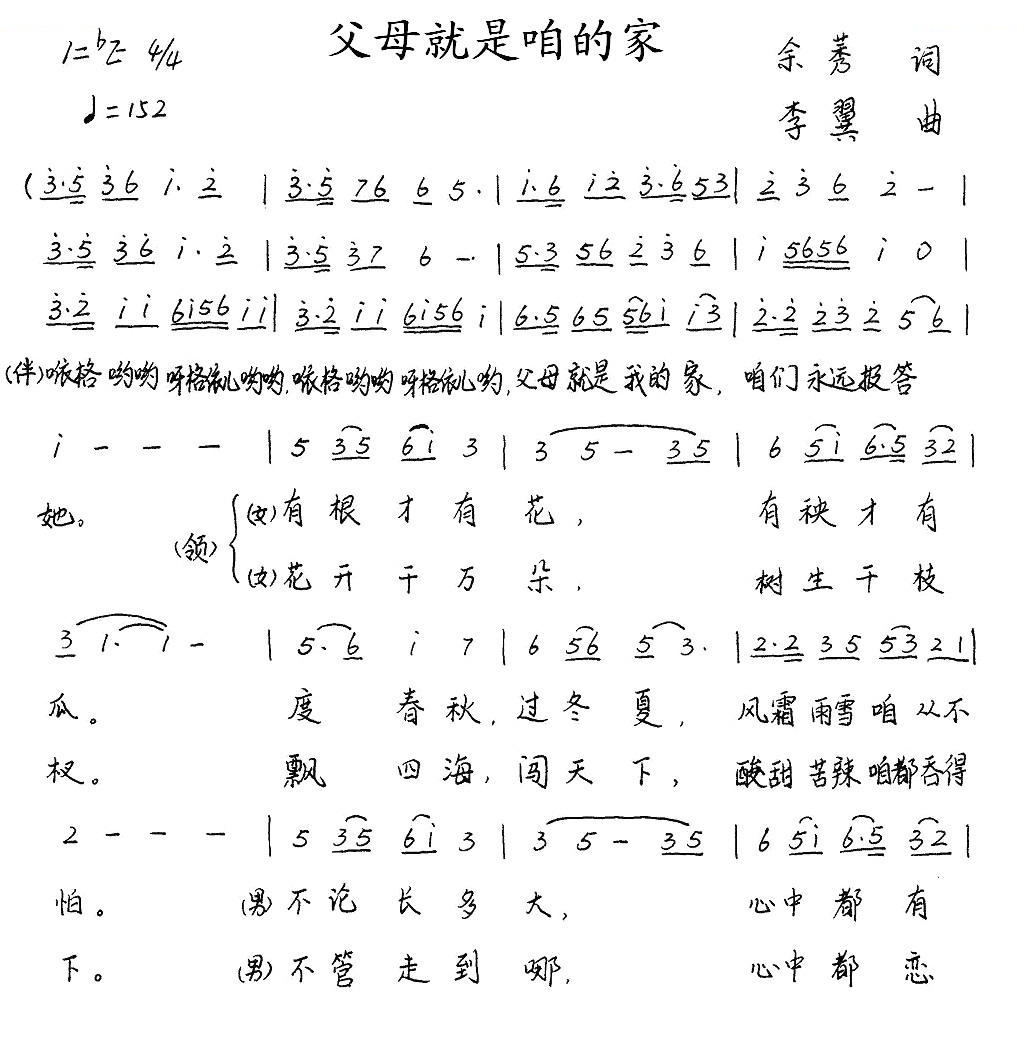 父母就是咱的家
1=♭E 4/4
余莠 词
♩=152
李翼 曲
(3̇·5̇ 3̇6 1̇· 2̇ | 3̇·5̇ 76 6 5· | 1̇·6 1̇2̇ 3̇·6̇ 53 | 2̇ 3̇ 6 2̇ - |
3̇·5̇ 3̇6̇ 1̇· 2̇ | 3̇·5̇ 3̇7 6 -· | 5·3 56 2̇ 3̇ 6 | 1̇ 5656 1̇ 0 |
3̇·2̇ 1̇1̇ 61̇56 1̇1̇ | 3̇·2̇ 1̇1̇ 61̇56 1̇ | 6·5 65 561̇ 1̇3̇ | 2̇·2̇ 2̇3̇ 2̇ 5 6 |
(伴)咳格哟哟呀格依儿哟哟,咳格哟哟呀格依儿哟,父母就是我的家,咱们永远报答
1̇ - - - | 5 35 61̇ 3 | 3 5 - 35 | 6 51̇ 6·5 32 |
她。 (领) (女)有根才有花, 有秧才有
(女)花开千万朵, 树生千枝
3 1· 1 - | 5· 6 1̇ 7 | 6 56 5 3· | 2·2 35 53 21 |
瓜。 度春秋,过冬夏,风霜雨雪咱从不
杈。 飘四海,闯天下,酸甜苦辣咱都吞得
2 - - - | 5 35 61̇ 3 | 3 5 - 35 | 6 51̇ 6·5 32 |
怕。 (男)不论长多大, 心中都有
下。 (男)不管走到哪, 心中都恋